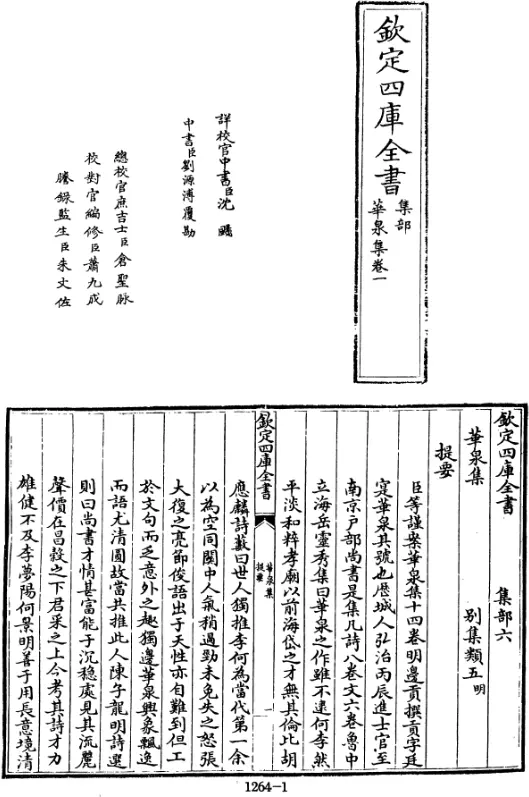 欽定四庫全書
集部
華泉集卷一
詳校官中書臣沈颺
中書臣劉源溥覆勘
總校官庶吉士臣倉聖脉
校對官編修臣蕭九成
謄錄監生臣朱文佐
欽定四庫全書 集部六
華泉集 別集類五 明
提要
臣等謹案華泉集十四卷明邊貢撰貢字廷
寔華泉其號也厯城人弘治丙辰進士官至
南京户部尚書是集凡詩八卷文六卷魯中
立海岳靈秀集曰華泉之作雖不逮何李然
平淡和粹孝廟以前海岱之才無其倫比胡
欽定四庫全書
華泉集
提要
一
應麟詩藪曰世人獨推李何為當代第一余
以為空同闗中人氣稍過勁未免失之怒張
大復之亮節俊語出于天性亦自難到但工
於文句而乏意外之趣獨邊華泉興象飄逸
而語尤清圓故當共推此人陳子龍明詩選
則曰尚書才情甚富能于沉穏處見其流麗
聲價在昌榖之下君采之上今考其詩才力
雄健不及李夢陽何景明善于用長意境清
1264-1